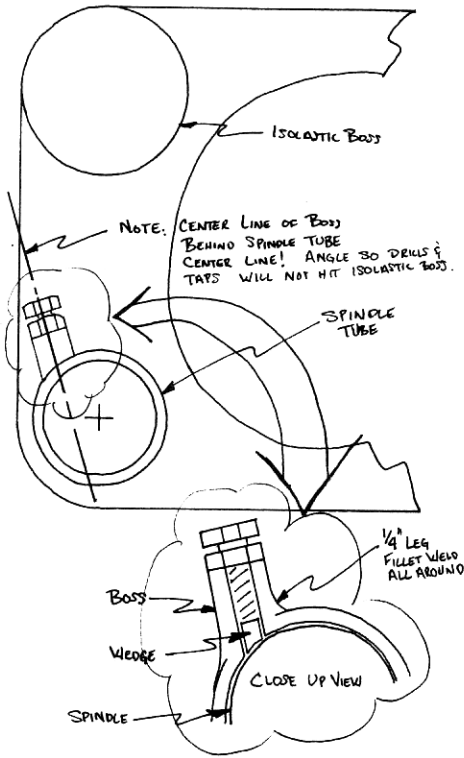 ISOLASTIC BOSS
NOTE: CENTER LINE OF BOSS
BEHIND SPINDLE TUBE
CENTER LINE! ANGLE SO DRILLS &
TAPS WILL NOT HIT ISOLASTIC BOSS.
SPINDLE
TUBE
1/4" LEG
FILLET WELD
ALL AROUND
BOSS
WEDGE
CLOSE UP VIEW
SPINDLE